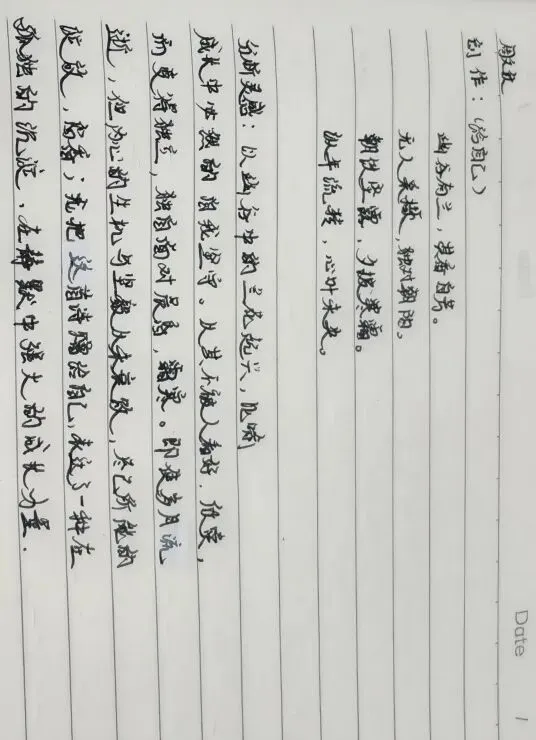 创作：《给自己》
幽谷有兰，其香自芳。
无人采撷，独对朝阳。
朝饮坠露，夕披寒霜。
流年流转，心叶未央。
分析灵感：以幽谷中的兰花起兴，比喻
成长中孤独的自我坚守。从其不被人看好，欣赏，
而变得独立，独自面对晨露，霜寒。即使岁月流
逝，但内心的生机与坚毅从未衰败，尽己所能的
绽放，留香；把这首诗赠给自己，表达了一种在
孤独的沉淀，在静默中强大的成长力量.
Date